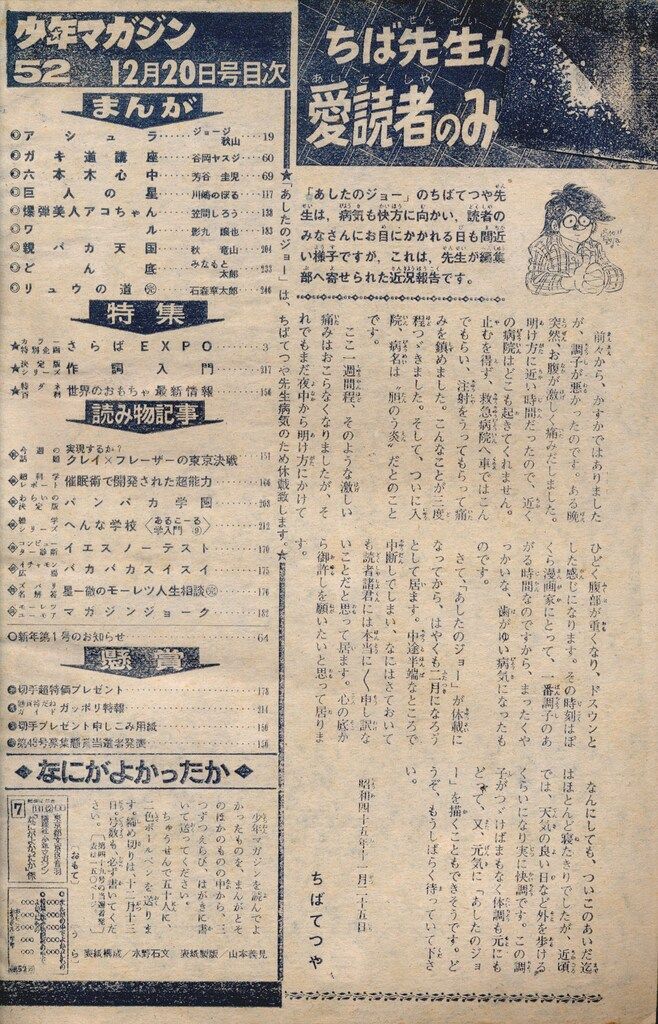 少年マガジン
52 12月20日号目次
まんが
アシュラ……ジョージ秋山……19
ガキ道講座……谷岡ヤスジ……60
六本木心中……芳谷圭児……69
巨人の星……川崎のぼる……117
爆弾美人アコちゃん……笠間しろう……138
ワル……影丸譲也……183
親バカ天国……秋竜山……204
どん底……みなもと太郎……233
リュウの道……石森章太郎……246
特集
★さらばEXPO……3
★作詞入門……217
★世界のおもちゃ最新情報……156
読み物記事
実現するか?
クレイ×フレーザーの東京決戦……151
催眠術で開発された超能力……166
バンバカ学園……203
へんな学校〈あるこーる学入門⑨〉……212
イエスノーテスト……170
バカバカスイスイ……175
星一徹のモーレツ人生相談……176
マガジンジョーク……182
○新年第1号のお知らせ……64
懸賞
切手超特価プレゼント……178
ガッポリ特報……214
切手プレゼント申しこみ用紙……156
第48号募集懸賞当選者発表……136
なにがよかったか
少年マガジンを読んでよ
かったものを、まんがとそ
のほかのものの中から、三
つずつえらび、はがきに書
いて送ってください。
ちゅうせんで五十人に、
二色ボールペンを送りま
す。締め切りは十二月十三
日。号数も必ず書いてくだ
さい。
〔おもて〕
〔うら〕
表紙構成/水野石文 表紙製版/山本義見
★「あしたのジョー」は、ちばてつや先生病気のため休載致します。★
ちば先生か
愛読者のみ
「あしたのジョー」のちばてつや先
生は、病気も快方に向かい、読者の
みなさんにお目にかかれる日も間近
い様子ですが、これは、先生が編集
部へ寄せられた近況報告です。
前々から、かすかではありました
が、調子が悪かったのです。ある晩
突然、お腹が激しく痛みだしました。
明け方に近い時間だったので、近く
の病院はどこも起きてくれません。
止むを得ず、救急病院へ車ではこん
でもらい、注射をうってもらって痛
みを鎮めました。こんなことが三度
程つづきました。そして、ついに入
院、病名は〝胆のう炎〟だとのこと
です。
ここ一週間程、そのような激しい
痛みはおこらなくなりましたが、そ
れでもまだ夜中から明け方にかけて
ひどく腹部が重くなり、ドスウンと
した感じになります。その時刻はぼ
くら漫画家にとって、一番調子のあ
がる時間なのですから、まったくや
っかいな、歯がゆい病気になったも
のです。
さて、「あしたのジョー」が休載に
なってから、はやくも二月になろう
として居ります。中途半端なところで
中断してしまい、なにはさておいて
も読者諸君には本当に申し訳な
いことだと思って居ります。心の底か
ら御許しを願いたいと思って居りま
す。
なんにしても、ついこのあいだ迄
はほとんど寝たきりでしたが、近頃
では、天気の良い日など外を歩ける
くらいになり実に快調です。この調
子がつづけばまもなく体調も元にも
どって、又、元気に「あしたのジョ
ー」を描くこともできそうです。ど
うぞ、もうしばらく待っていて下さ
い。
昭和四十五年十一月二十五日
ちばてつや